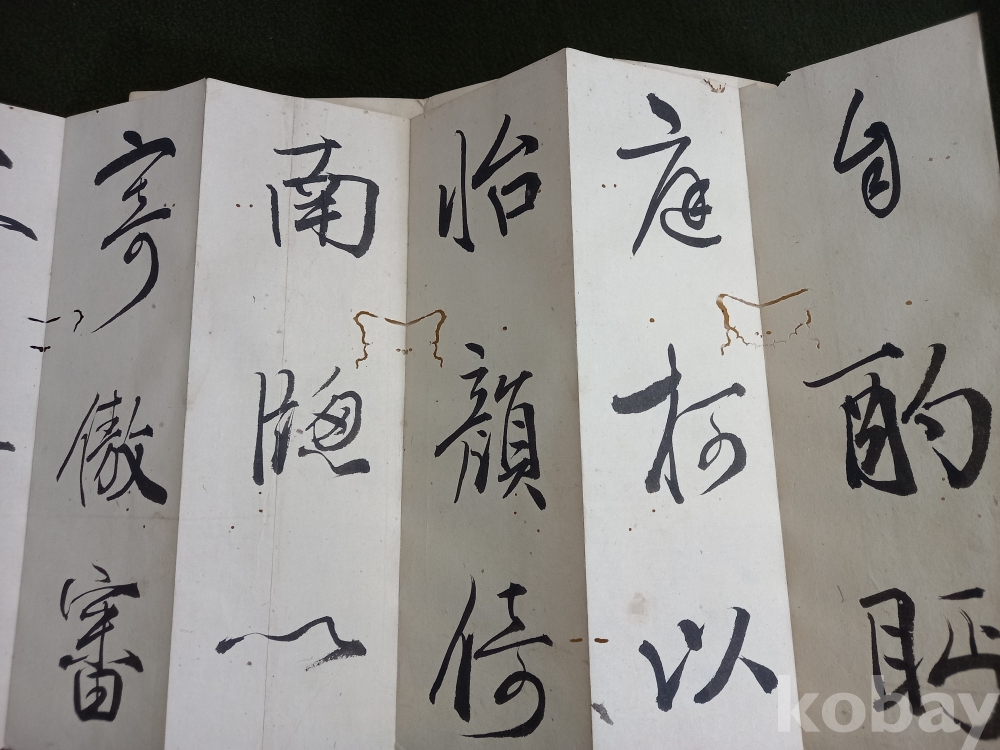 自酌眄
庭柯以
怡顔倚
南牕以
寄傲審
kobay